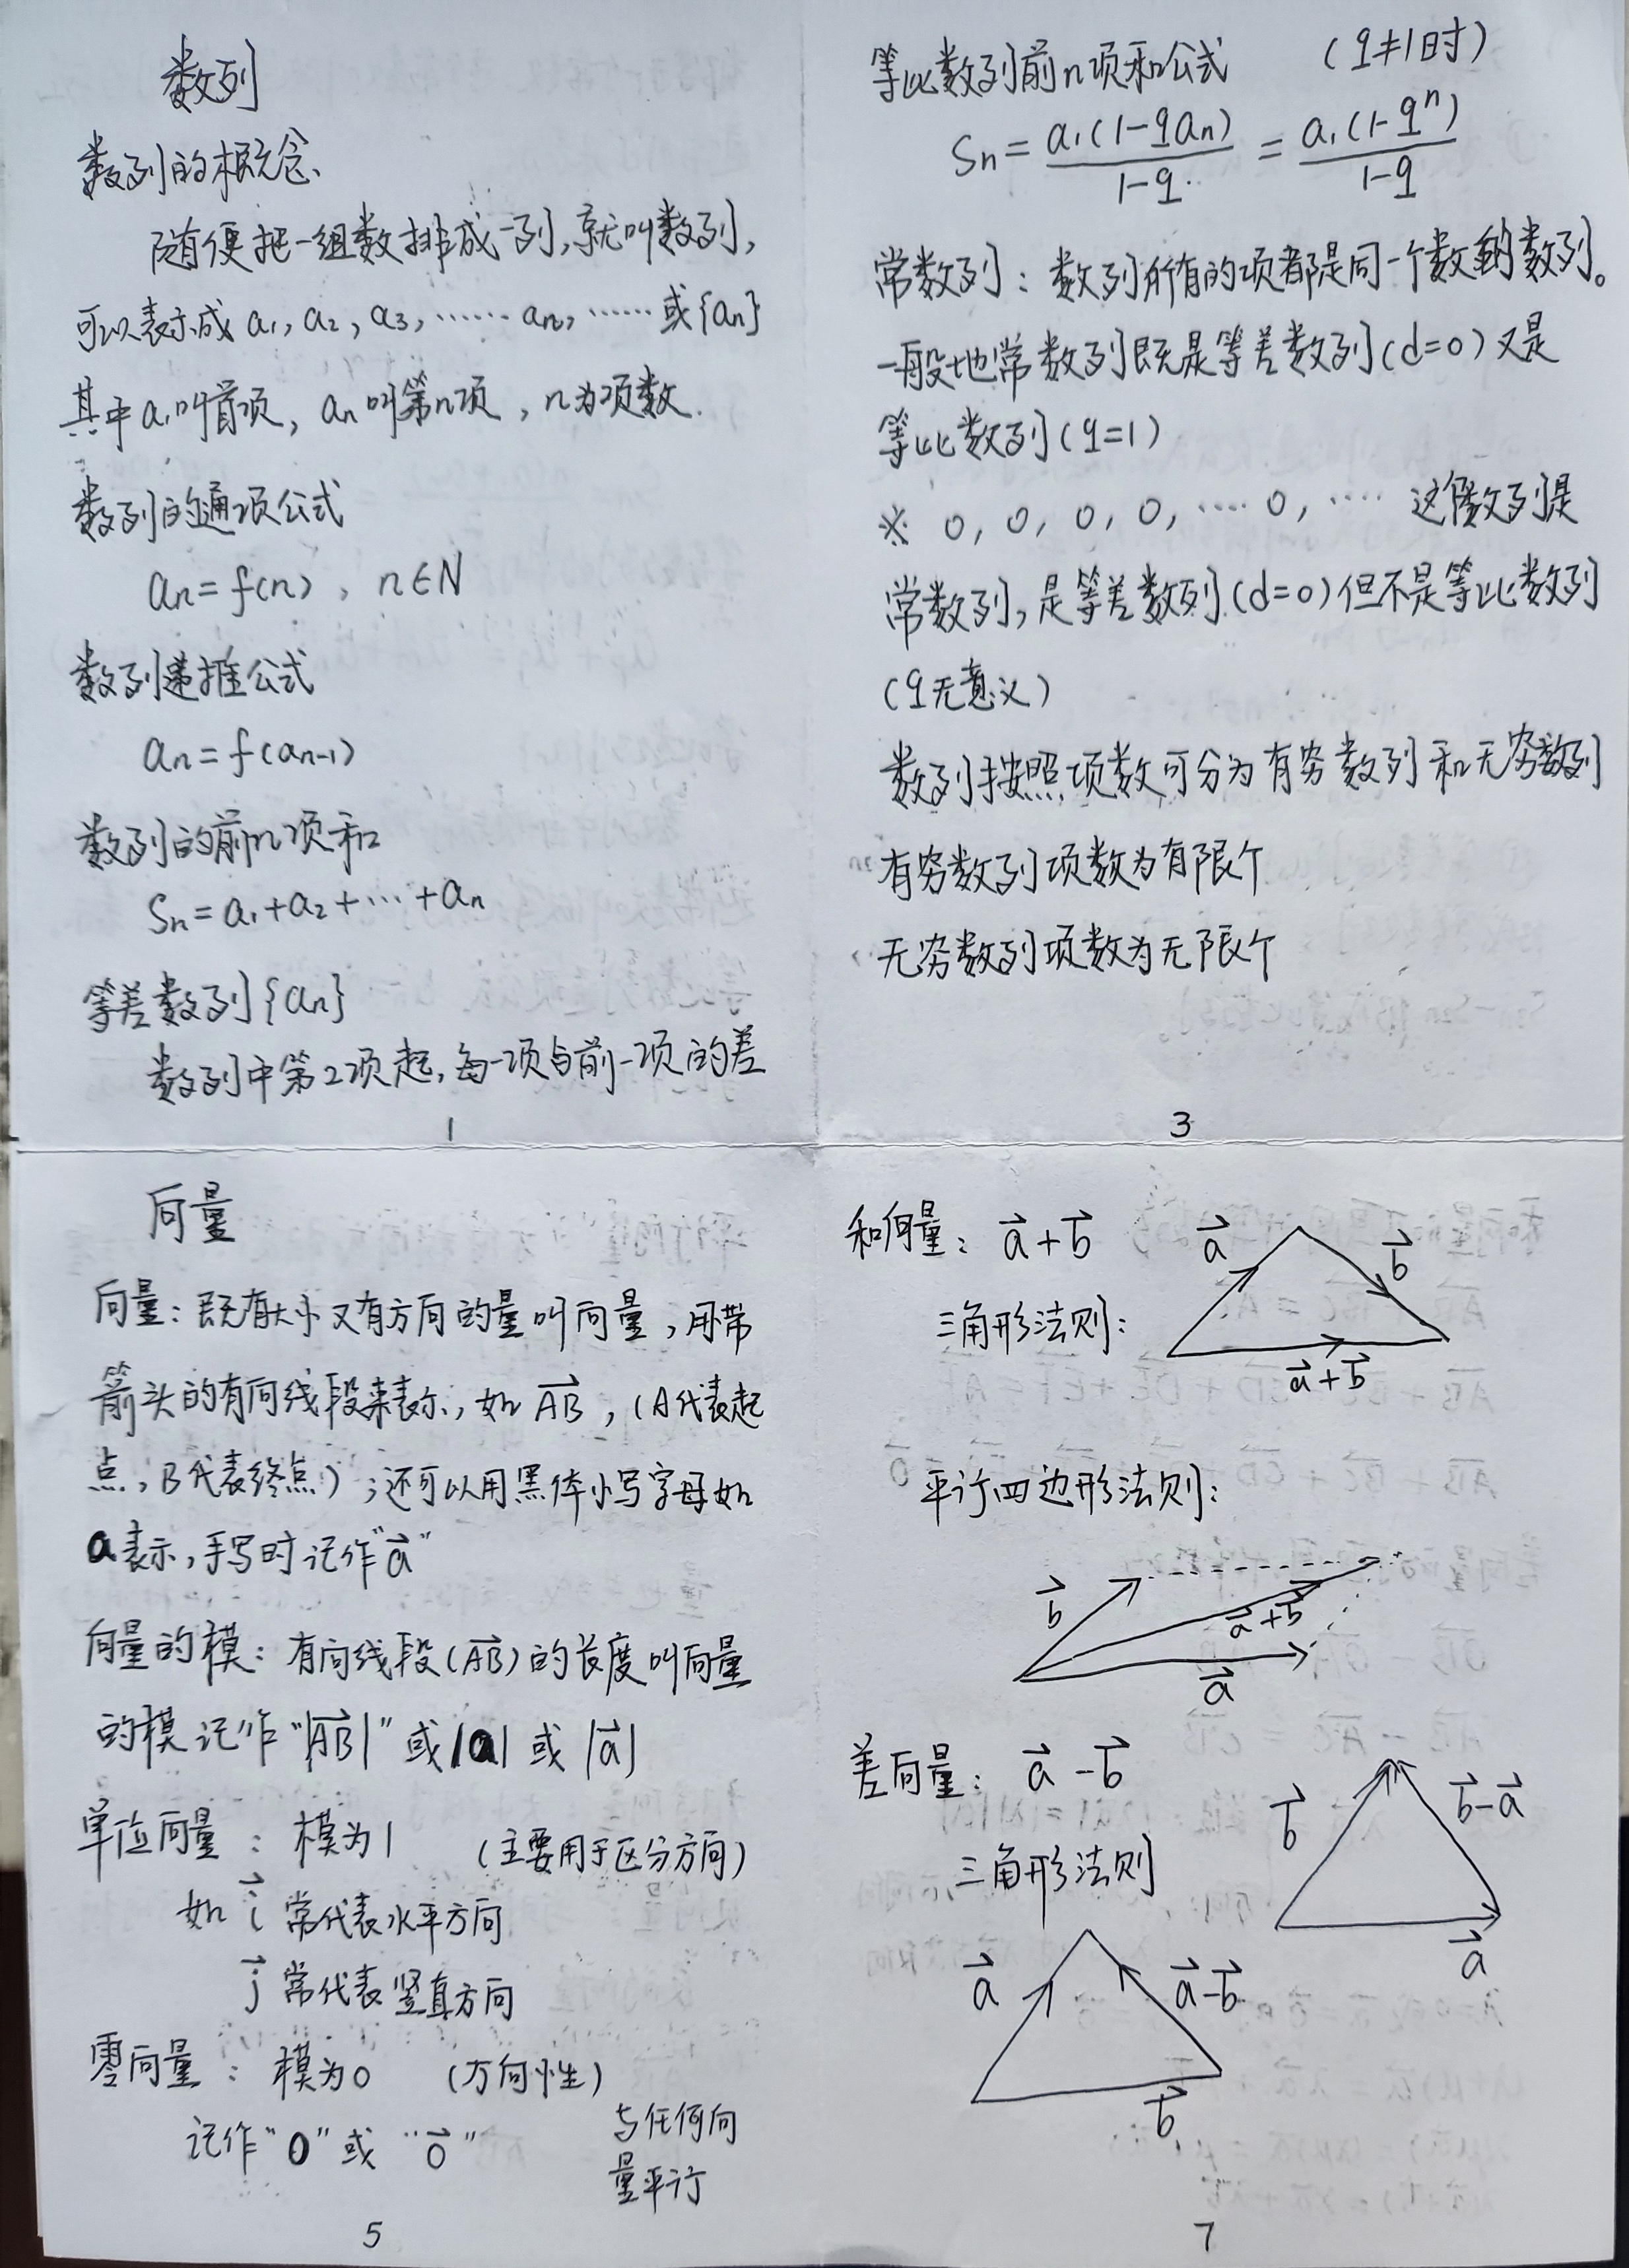 数列
数列的概念
随便把一组数排成一列,就叫数列,
可以表示成 a₁, a₂, a₃, …… aₙ, …… 或{aₙ}
其中a₁叫首项, aₙ叫第n项, n为项数.
数列的通项公式
aₙ=f(n), n∈N
数列递推公式
aₙ=f(aₙ₋₁)
数列的前n项和
Sₙ=a₁+a₂+…+aₙ
等差数列{aₙ}
数列中第2项起,每一项与前一项的差
1
等比数列前n项和公式 (q≠1时)
Sₙ= a₁(1-qaₙ)/1-q. = a₁(1-qⁿ)/1-q
常数列: 数列所有的项都是同一个数的数列。
一般地常数列既是等差数列(d=0)又是
等比数列(q=1)
※ 0, 0, 0, 0, …… 0, …… 这个数列是
常数列,是等差数列(d=0)但不是等比数列
(q无意义)
数列按照项数可分为有穷数列和无穷数列
有穷数列项数为有限个
无穷数列项数为无限个
3
向量
向量: 既有大小又有方向的量叫向量, 用带
箭头的有向线段来表示, 如 A⃗B⃗, (A代表起
点, B代表终点); 还可以用黑体小写字母如
a表示, 手写时记作"a⃗"
向量的模: 有向线段(A⃗B⃗)的长度叫向量
的模 记作 "|A⃗B⃗|" 或|a| 或 |a⃗|
单位向量: 模为1 (主要用于区分方向)
如 i⃗ 常代表水平方向
j⃗ 常代表竖直方向
零向量: 模为0 (方向性)
记作"0"或 "0⃗"
与任何向
量平行
5
和向量: a⃗+b⃗
a⃗
b⃗
三角形法则:
a⃗+b⃗
平行四边形法则:
b⃗
a⃗+b⃗
a⃗
差向量: a⃗-b⃗
b⃗
b⃗-a⃗
三角形法则
a⃗
a⃗
a⃗-b⃗
b⃗
7